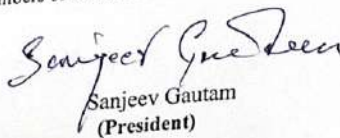 Sanjeev Gautam
Sanjeev Gautam
(President)